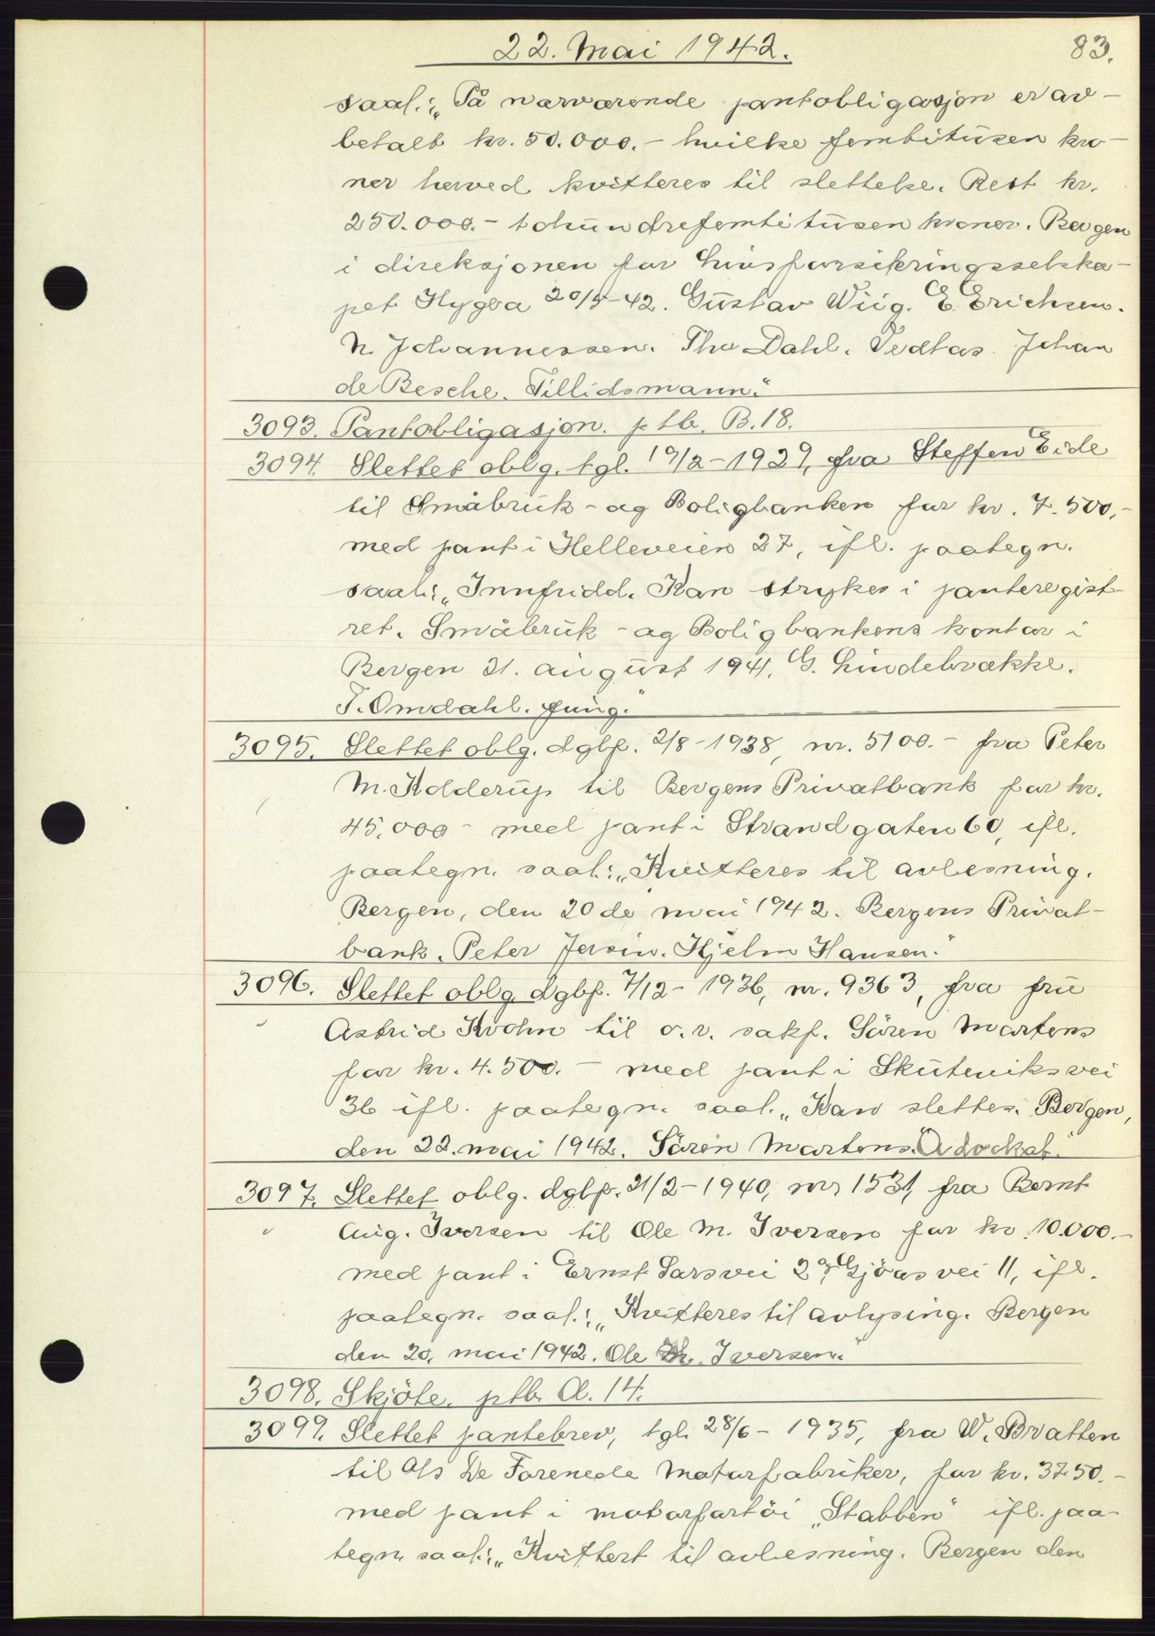 22. Mai 1942.
83.
saal.: „På nærværende pantobligasjon er av-
betalt kr. 50.000.- hvilke femtitusen kro-
ner herved kvitteres til slettelse. Rest kr.
250.000.- tohundrefemtitusen kroner. Bergen
i direksjonen for Livsforsikringsselska-
pet Hygea 20/5-42. Gustav Wiig. E. Erichsen.
N. Johannessen. Thv Dahl. Vedtas. Johan
de Besche. Tillidsmann."
3093. Pantobligasjon. ptb. B.18.
3094. Slettet oblg. tgl. 19/2-1929, fra Steffen Eide
til Småbruk- og Boligbanken for kr. 7.500,-
med pant i Helleveien 27, ifl. paategn.
saal: „Innfridd. Kan strykes i panteregist-
ret. Småbruk- og Boligbankens kontor i
Bergen 21. august 1941. G. Lindebrække.
T. Omdahl. fung."
3095. Slettet oblg. dgbf. 2/8-1938, nr. 5100.- fra Peter
M. Kolderup til Bergens Privatbank for kr.
45.000- med pant i Strandgaten 60, ifl.
paategn. saal: „Kvitteres til avlesning.
Bergen, den 20de mai 1942. Bergens Privat-
bank. Peter Jersin. Hjelm Hansen."
3096. Slettet oblg dgbf. 7/12-1936, nr. 9363, fra fru
Astrid Krohn til o.r. sakf. Sören Martens
for kr. 4.500.- med pant i Skuteviksvei
36 ifl. paategn. saal. „Kan slettes. Bergen,
den 22. mai 1942. Sören Martens. Advokat."
3097. Slettet oblg. dgbf. 21/2-1940, nr. 1531, fra Bernt
Aug. Iversen til Ole M. Iversen for kr. 10.000.-
med pant i Ernst Sarsvei 2 og Gjöasvei 11, ifl.
paategn. saal.: „Kvitteres til avlysing. Bergen
den 20. mai 1942. Ole M. Iversen."
3098. Skjöte. ptb. A. 14.
3099. Slettet pantebrev, tgl. 28/6-1935, fra W. Bratten
til A/s De Forenede Motorfabriker, for kr. 3750.-
med pant i motorfartöi „Stabben" ifl. paa-
tegn. saal: „Kvittert til avlesning. Bergen den